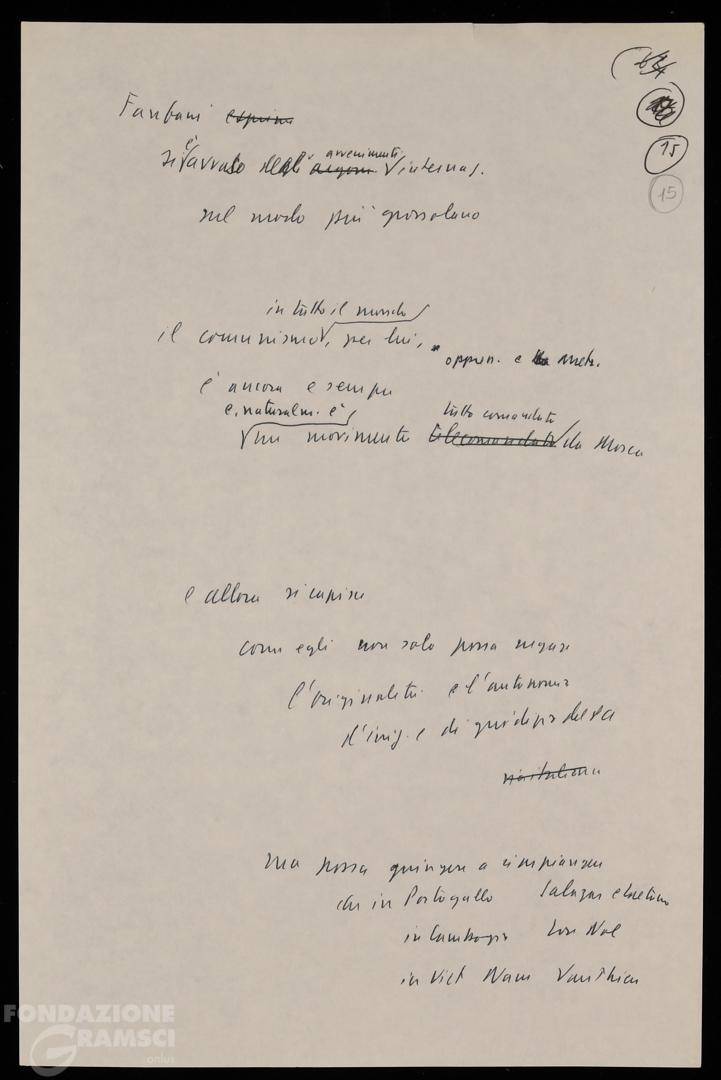 15
15
Fanfani
si è avvalso degli avvenimenti internaz.
nel modo più grossolano
in tutto il mondo
il comunismo, per lui,
oppur. e
è ancora e sempre
e, naturalm. è
tutto comandato
un movimento telecomandato da Mosca
e allora si capisce
come egli non solo possa negare
l'originalità e l'autonomia
d'iniz. e di giudizio del PCI
ma possa giungere a rimpiangere
che in Portogallo Salazar e Caetano
in Cambogia Lon Nol
in Viet Nam Van Thieu
FONDAZIONE
GRAMSCI
onlus